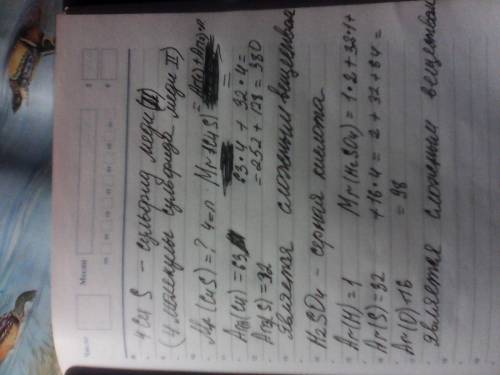 Число
Месяц
4CuS – сульфид меди (II)
(4 молекулы сульфида меди II)
Mr (CuS) = ? 4=n Mr 4(CuS) = Ar(Cu)+Ar(S)·n
=
Ar(Cu) = 63 63·4 + 32·4 =
Ar(S) = 32 = 252 + 128 = 380
Является сложным веществом
H2SO4 – серная кислота
Ar(H) = 1 Mr(H2SO4) = 1·2 + 32·1+
Ar(S) = 32 +16·4 = 2 + 32 + 64 =
Ar(O) = 16 = 98
Является сложным веществом